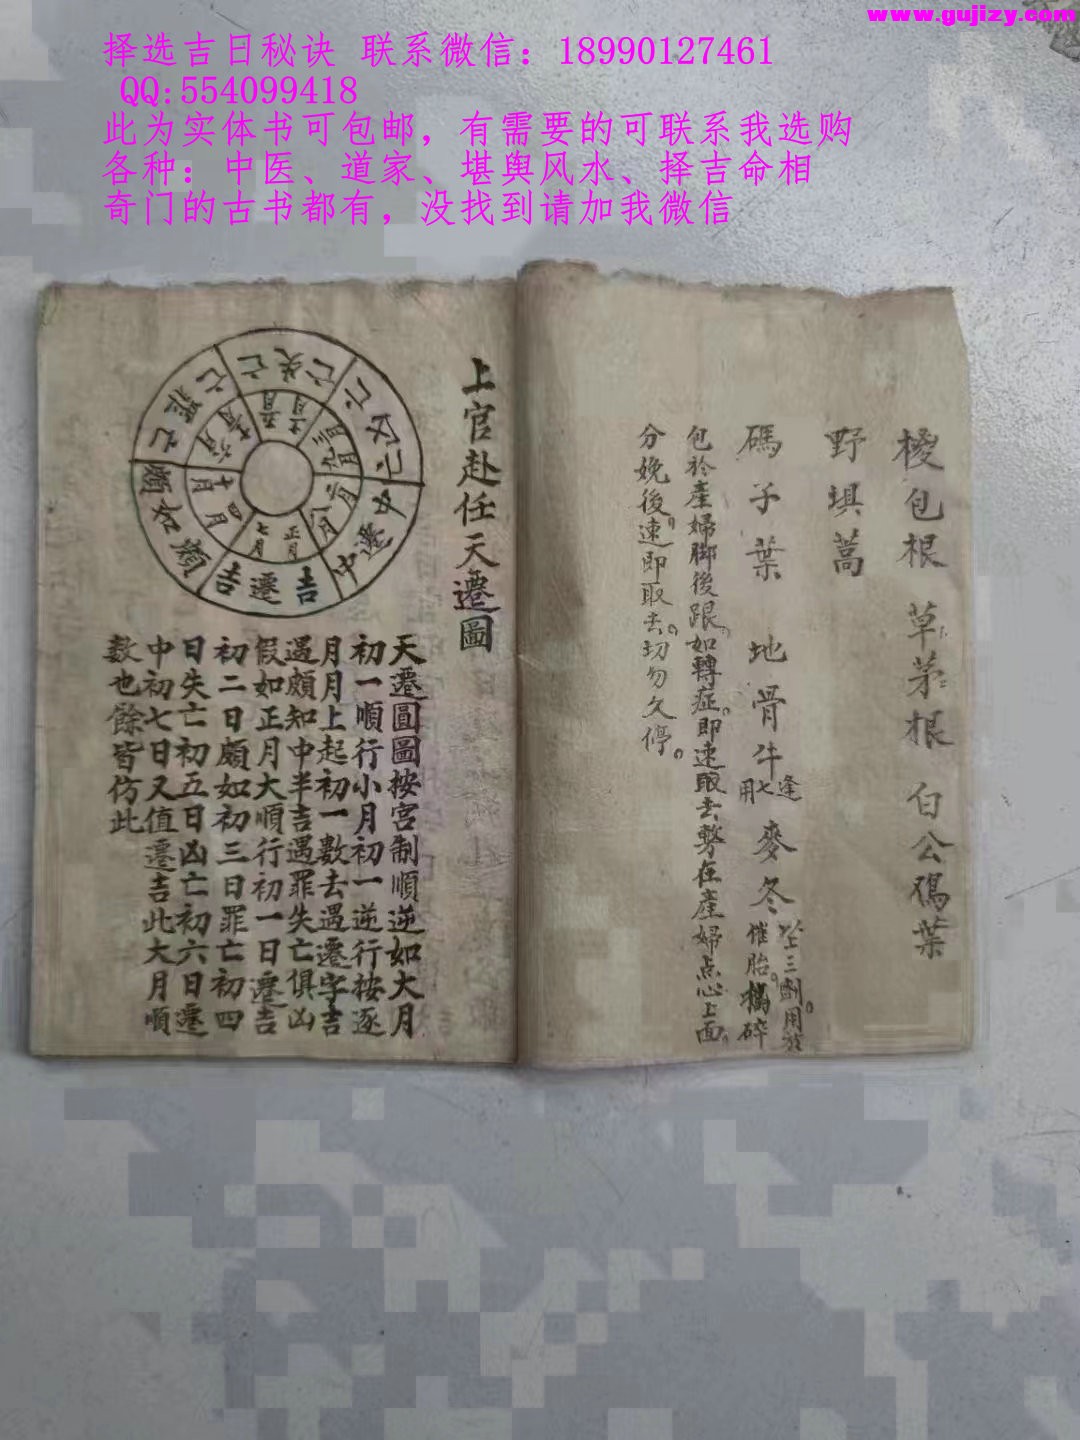 www.gujizy.com
择选吉日秘诀 联系微信：18990127461
QQ:554099418
此为实体书可包邮，有需要的可联系我选购
各种：中医、道家、堪舆风水、择吉命相
奇门的古书都有，没找到请加我微信
包根 草茅根 白公碼葉
野蒿
碼子葉 地骨牛七 逢用 麥冬
坐三劑。用於
催胎。搗碎
包於產婦脚後跟。如轉症。即速取去。在產婦点心上面。
分娩後。速即取去。切勿久停。
上官赴任天遷圖
亡失亡
亡罪亡
吉遷吉
中遷中
正月
七月
天遷圖圖按宮制順逆如大月
初一順行小月初一逆行按逐
月月上起初一數去遇遷字吉
遇頗知中半吉遇罪失亡俱凶
假如正月大順行初一日遷吉
初二日頗如初三日罪亡初四
日失亡初五日凶亡初六日遷
中初七日又值遷吉此大月順
数也餘皆仿此